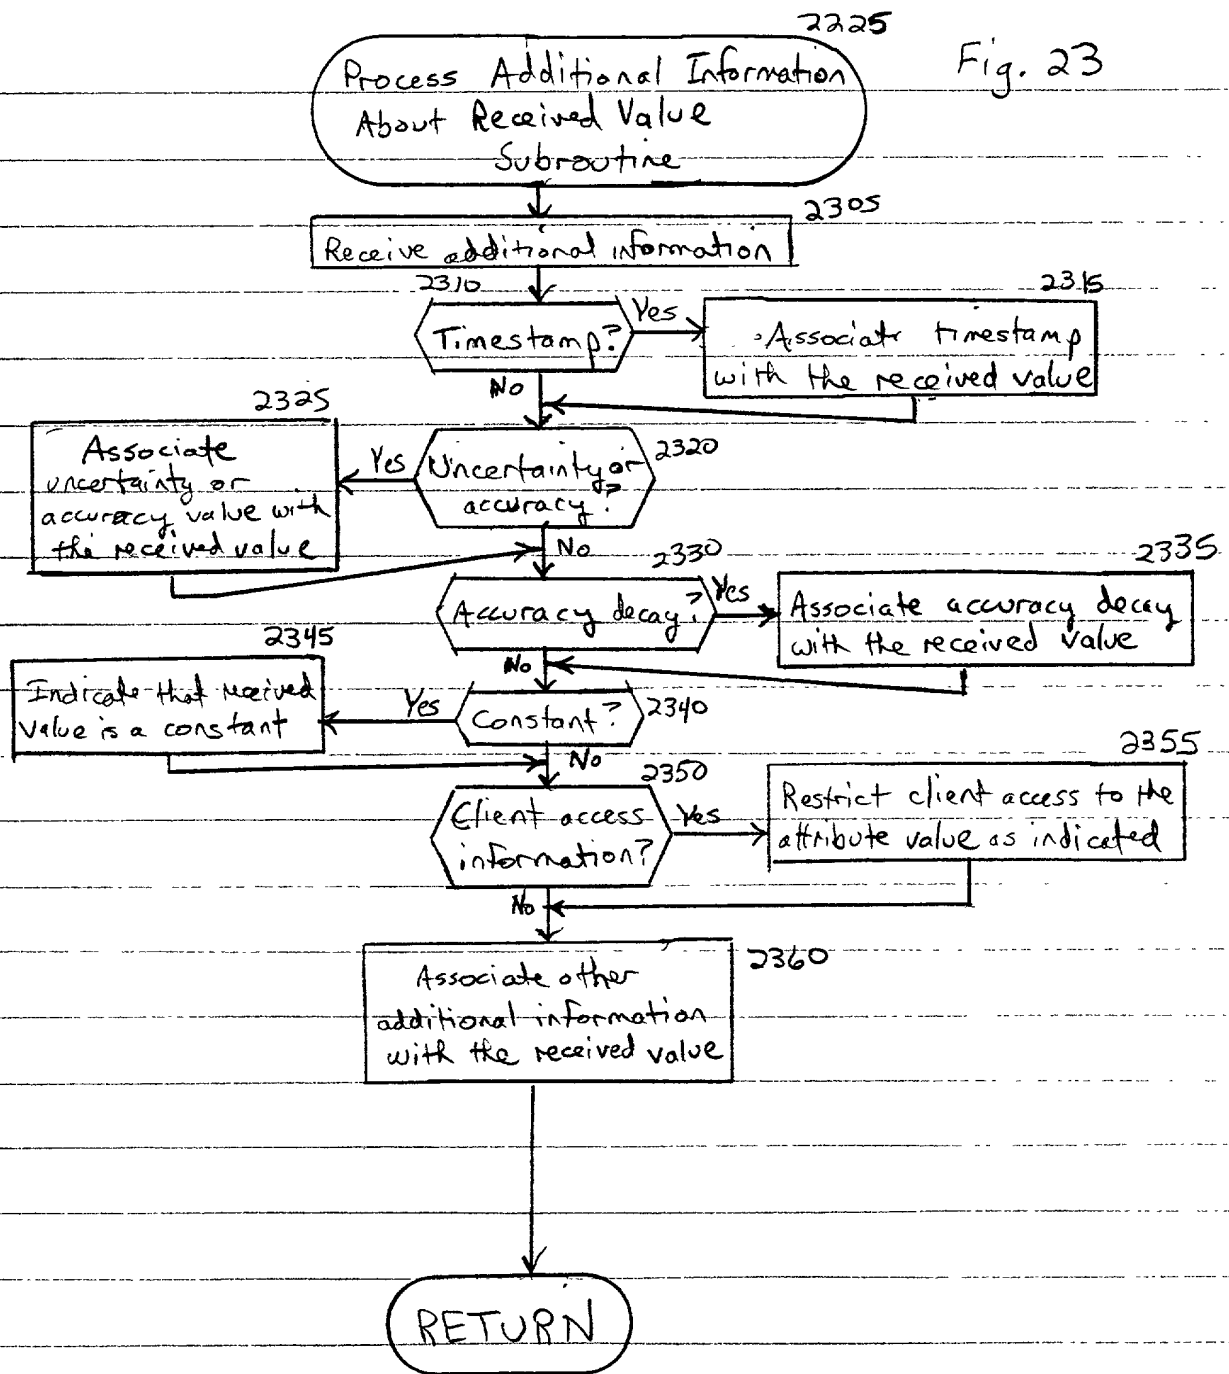 2225
Fig. 23
Process Additional Information
About Received Value
Subroutine
2305
Receive additional information
2310
Timestamp?
Yes
No
2315
Associate timestamp
with the received value
2320
Uncertainty or
accuracy?
Yes
No
2325
Associate
uncertainty or
accuracy value with
the received value
2330
Accuracy decay?
Yes
No
2335
Associate accuracy decay
with the received value
2340
Constant?
Yes
No
2345
Indicate that received
value is a constant
2350
Client access
information?
Yes
No
2355
Restrict client access to the
attribute value as indicated
2360
Associate other
additional information
with the received value
RETURN